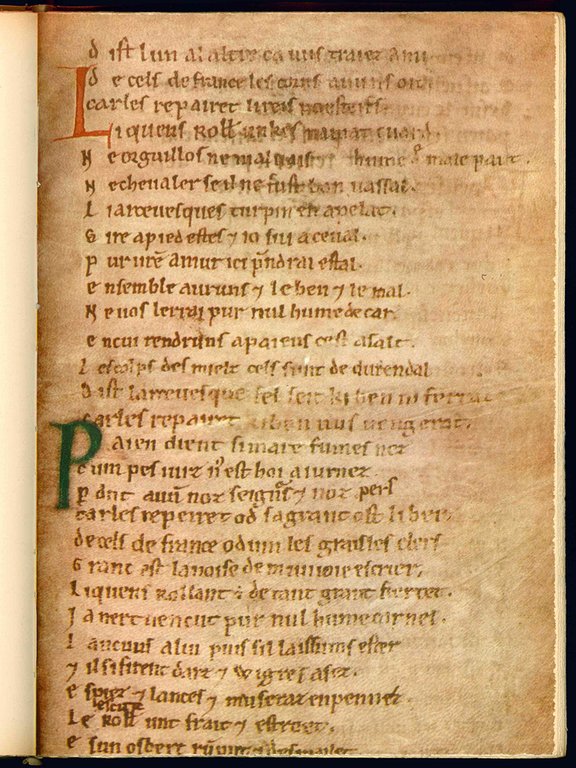 D ist lun al altre ca uus traiez ami
D e cels de france les corns auuns oit
Carles repairet li reis poesteifs
Li quens Roll̄ unkes namat cuard
N e orguillos ne maluais hume de male part.
N e cheualer se il ne fust bon uassal.
L i arceuesques turpin en apelat.
S ire a pied estes ⁊ io sui a ceual.
P ur ur̄e amur ici p̄ndrai estal.
e nsemble auruns ⁊ le ben ⁊ le mal.
N e uos lerrai pur nul hume de car.
e ncui rendruns a paiens cest asalt.
l es colps des mielz cels sunt de durendal
D ist larceuesque fel seit ki ben ni ferrat
Carles repairet ki ben nus uengerat.
Paien dient si mare fumes nez
Cum pes iurz n̄ est hoi aiurnez
P erdut auū noz seignᵘs ⁊ noz pers
Carles repeiret od sa grant ost li ber.
de cels de france odum les graisles clers
G rant est la noise de munioie escrier.
L i quens Rollant ē de tant grant fiertet.
J a nert uencut pur nul hume carnel.
L ancuns a lui puis sil laissums ester
⁊ il si firent darz ⁊ wigres asez.
e spiez ⁊ lances ⁊ museraz enpennez
Lescut Roll̄ unt frait ⁊ estroet.
e sun osberc rūput ⁊ desmailet